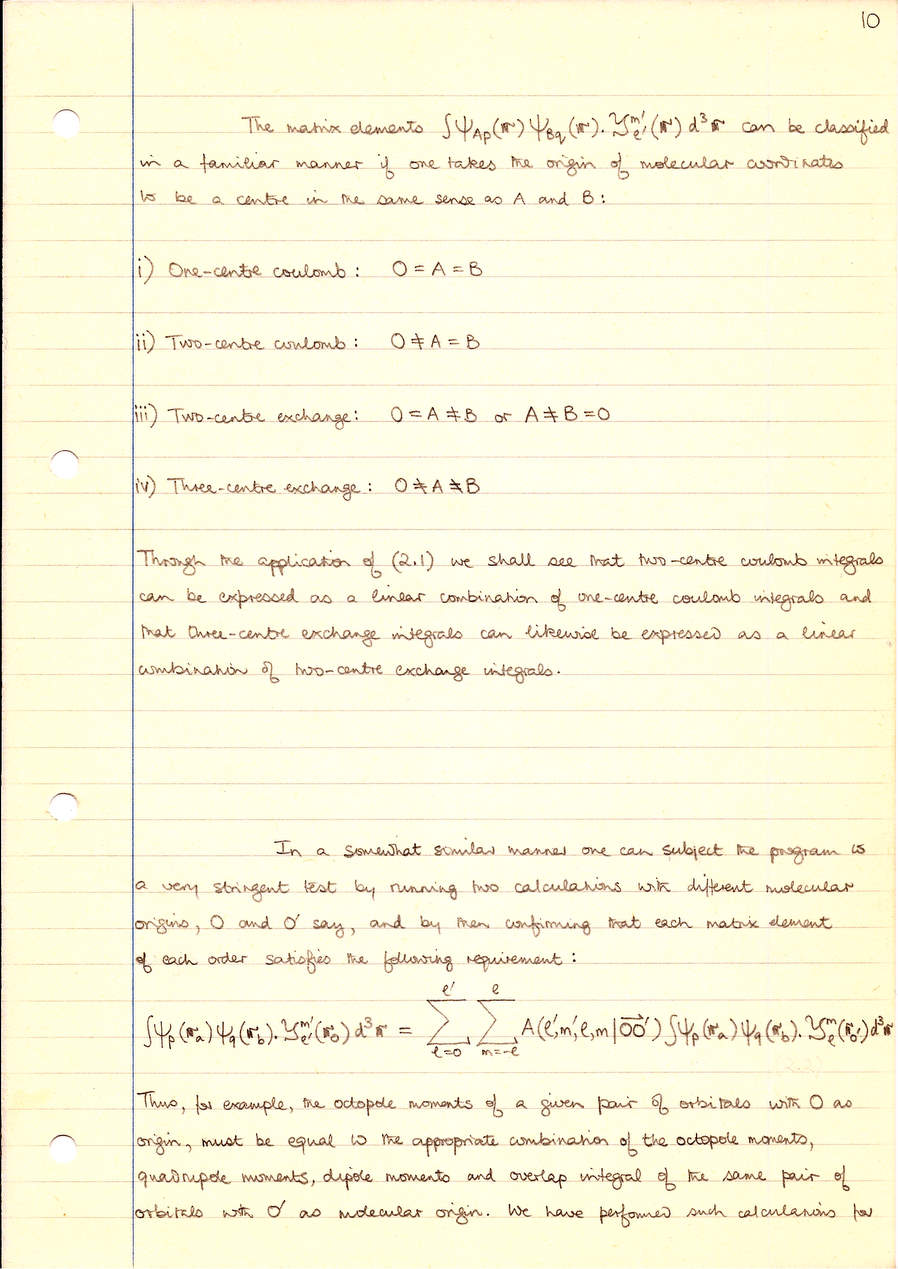 10
The matrix elements ∫ψ_Ap(𝕣) ψ_Bq(𝕣). 𝒴_ℓ'^m'(𝕣) d³𝕣 can be classified
in a familiar manner if one takes the origin of molecular coordinates
to be a centre in the same sense as A and B:
i) One-centre coulomb: O = A = B
ii) Two-centre coulomb: O ≠ A = B
iii) Two-centre exchange: O = A ≠ B or A ≠ B = O
iv) Three-centre exchange: O ≠ A ≠ B
Through the application of (2.1) we shall see that two-centre coulomb integrals
can be expressed as a linear combination of one-centre coulomb integrals and
that three-centre exchange integrals can likewise be expressed as a linear
combination of two-centre exchange integrals.
In a somewhat similar manner one can subject the program to
a very stringent test by running two calculations with different molecular
origins, O and O' say, and by then confirming that each matrix element
of each order satisfies the following requirement:
∫ψ_p(𝕣_a) ψ_q(𝕣_b). 𝒴_ℓ'^m'(𝕣_o) d³𝕣 = Σ_{ℓ=0}^{ℓ'} Σ_{m=-ℓ}^{ℓ} A(ℓ',m',ℓ,m|OO') ∫ψ_p(𝕣_a) ψ_q(𝕣_b). 𝒴_ℓ^m(𝕣_o') d³𝕣
Thus, for example, the octopole moments of a given pair of orbitals with O as
origin, must be equal to the appropriate combination of the octopole moments,
quadrupole moments, dipole moments and overlap integral of the same pair of
orbitals with O' as molecular origin. We have performed such calculations for